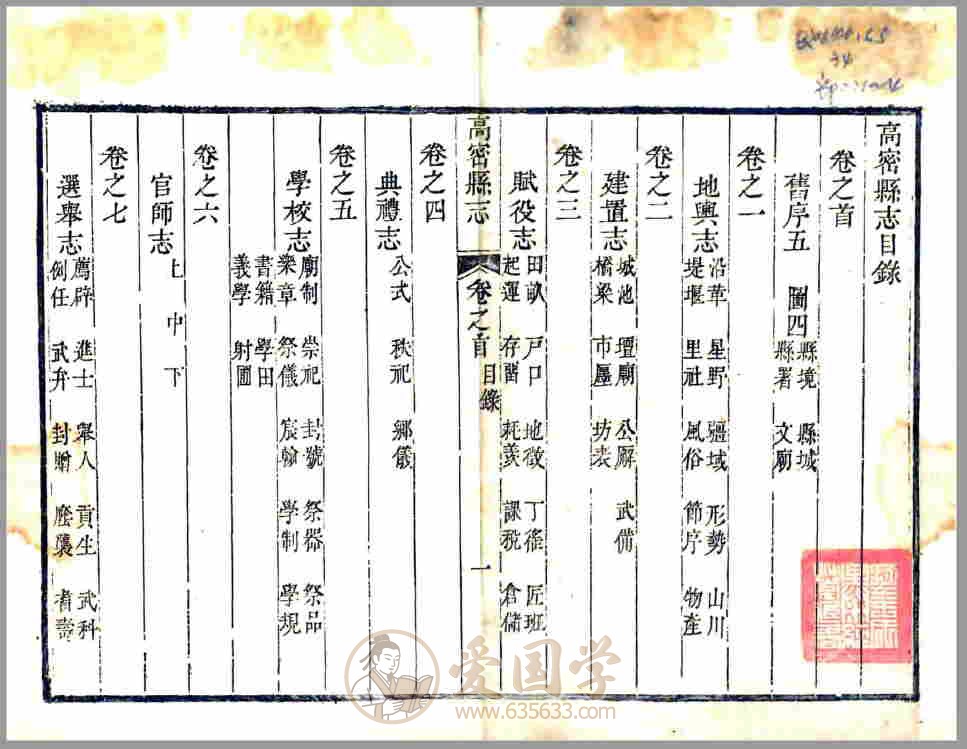 高密縣志目錄
卷之首
舊序五 圖四 縣境 縣城
縣署 文廟
卷之一
地輿志 沿革 星野 疆域 形勢 山川
堤堰 里社 風俗 節序 物產
卷之二
建置志 城池 壇廟 公廨 武備
橋梁 市廛 坊表
卷之三
賦役志 田畝 戶口 地徵 丁徭 匠班
起運 存留 耗羨 課稅 倉儲
高密縣志 卷之首 目錄 一
卷之四
典禮志 公式 秩祀 鄉儀
卷之五
學校志 廟制 崇祀 封號 祭器 祭品
樂章 祭儀 宸翰 學制 學規
書籍 學田
義學 射圃
卷之六
官師志 上 中 下
卷之七
選舉志 薦辟 進士 舉人 貢生 武科
例任 武弁 封贈 廕襲 耆壽
爱国学
www.635633.com